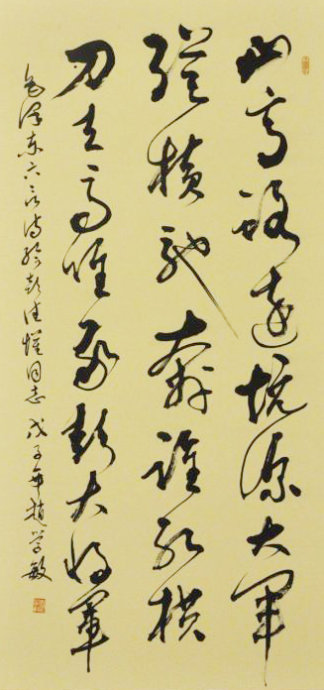 山高路远坑深大军
縱横驰奔谁敢横
刀立马唯我彭大将軍
毛泽东六言诗给彭德懷同志 戊子年趙学敏